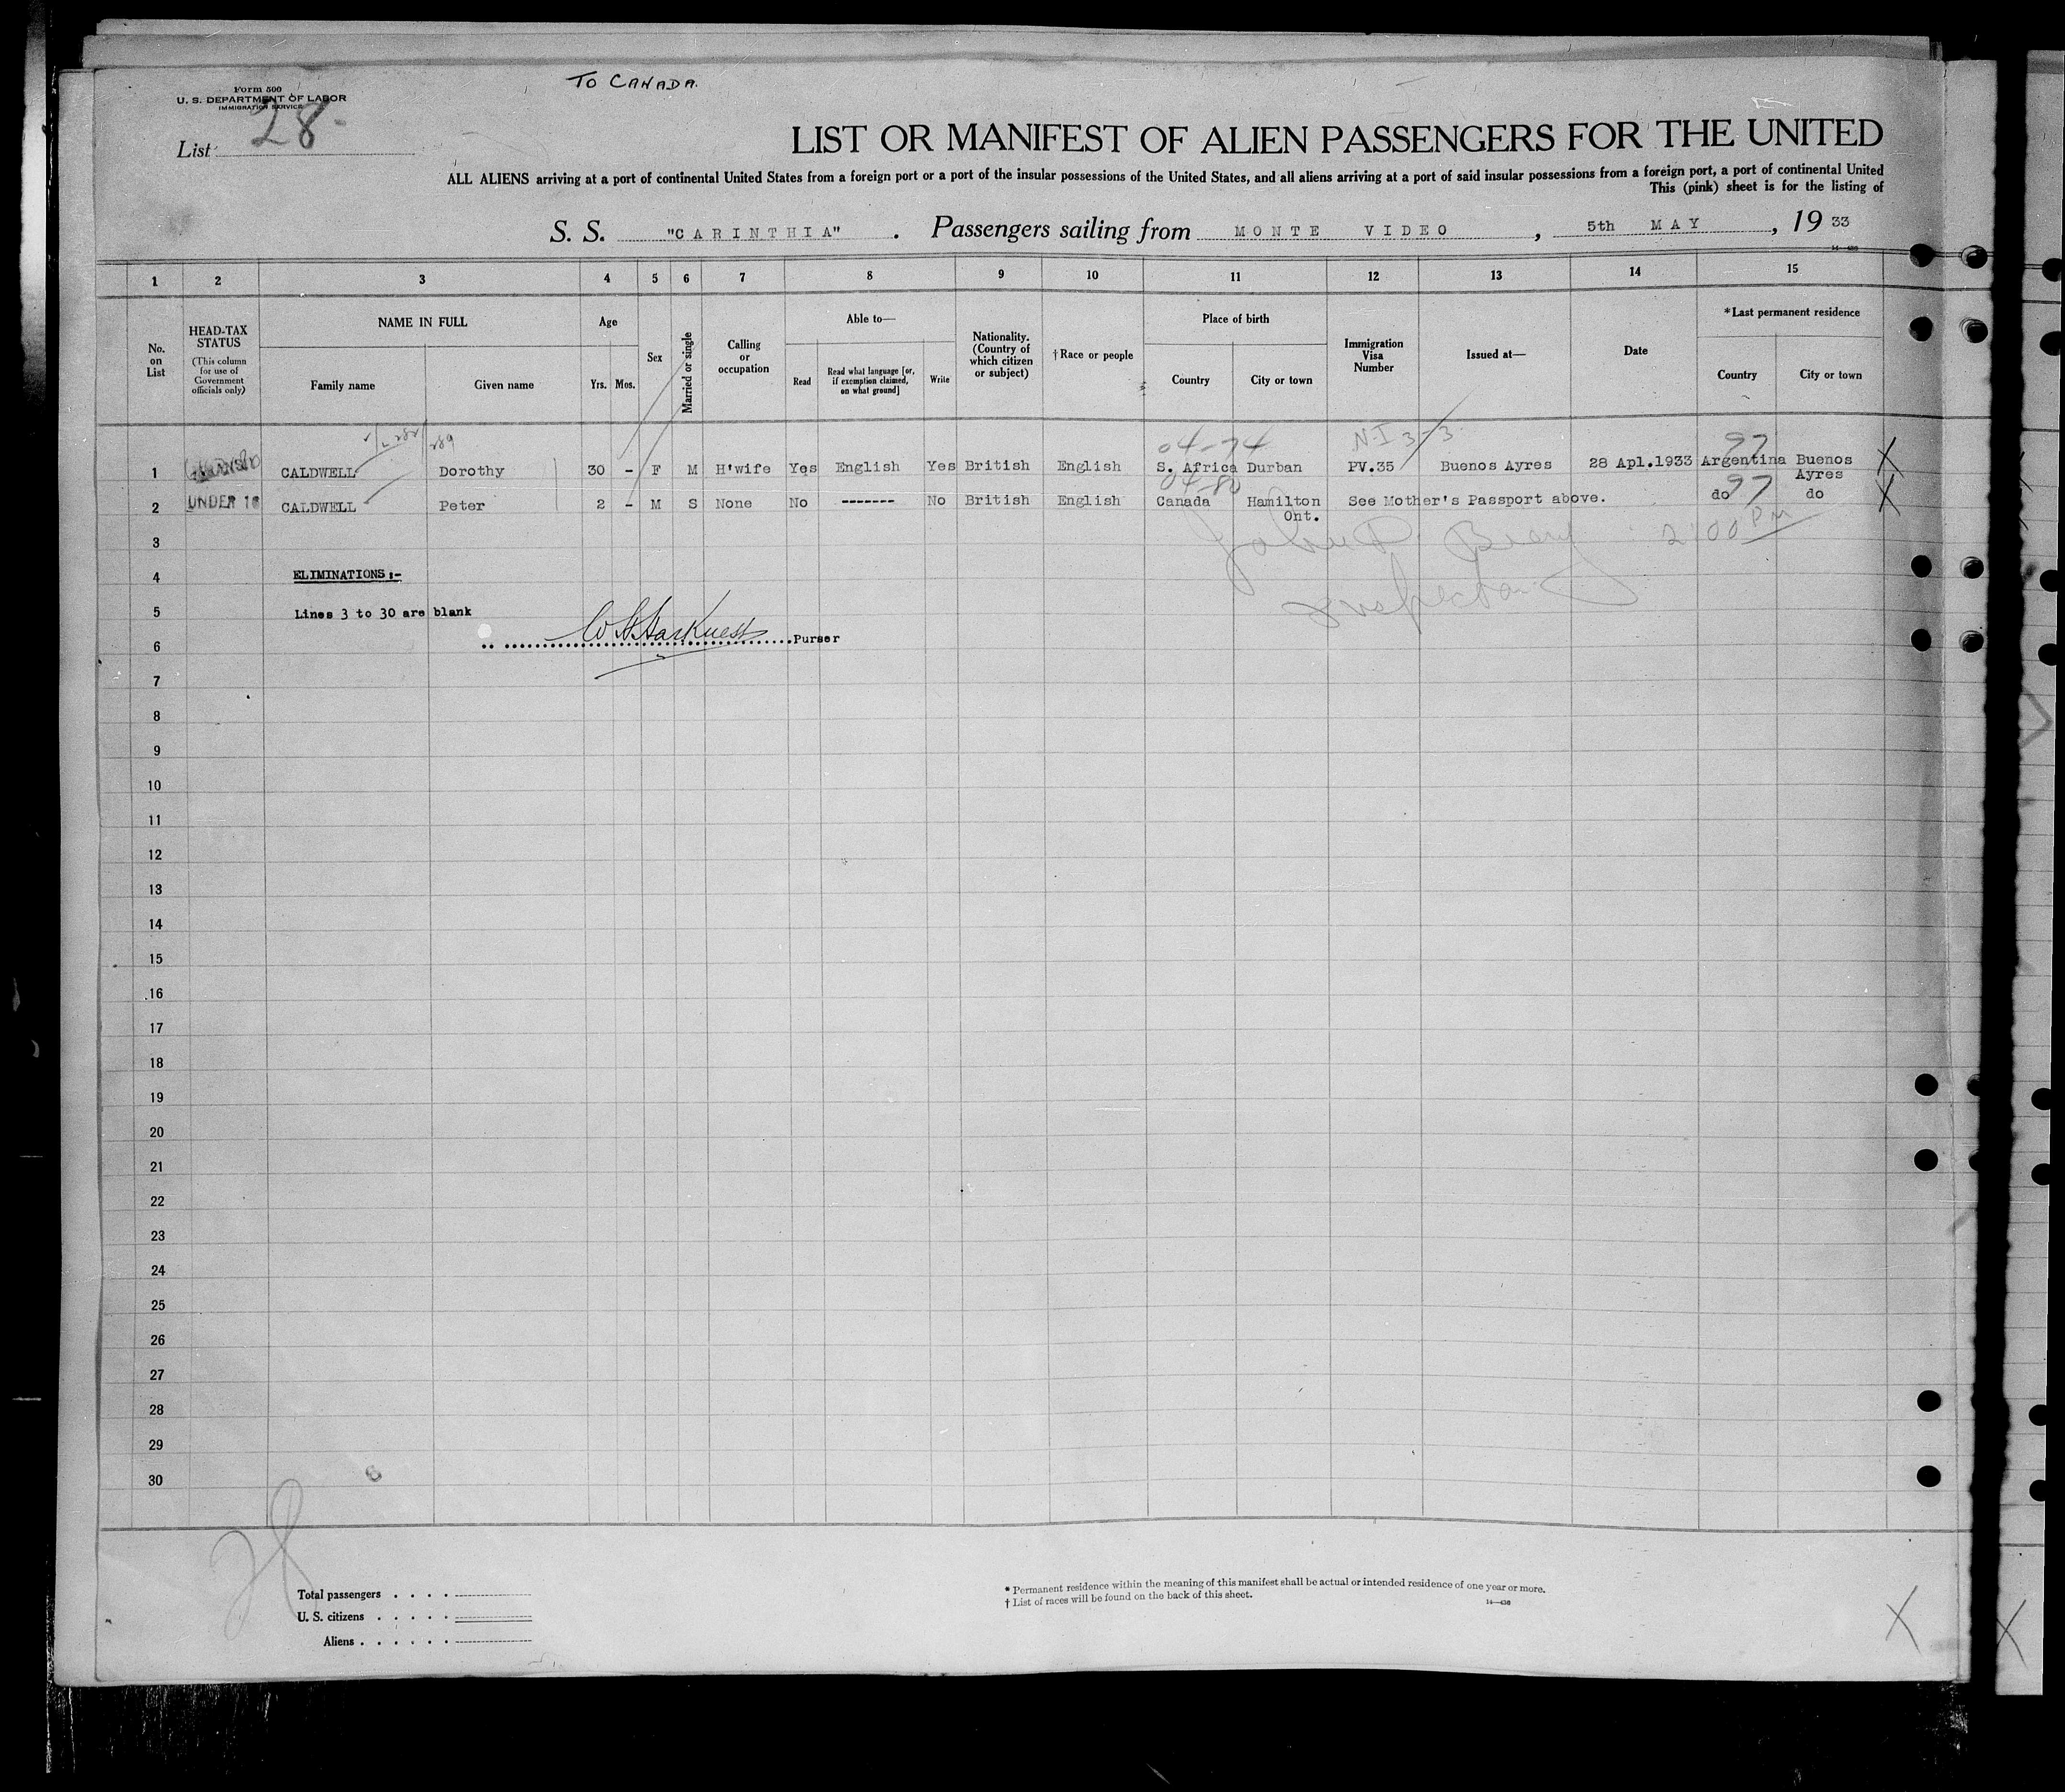 TO CANADA.
Form 500
U. S. DEPARTMENT OF LABOR
IMMIGRATION SERVICE
List 28
LIST OR MANIFEST OF ALIEN PASSENGERS FOR THE UNITED
ALL ALIENS arriving at a port of continental United States from a foreign port or a port of the insular possessions of the United States, and all aliens arriving at a port of said insular possessions from a foreign port, a port of continental United
This (pink) sheet is for the listing of
S. S. "CARINTHIA". Passengers sailing from MONTE VIDEO, 5th MAY, 19 33
1 2 3 4 5 6 7 8 9 10 11 12 13 14 15
No. on List
HEAD-TAX STATUS
(This column for use of Government officials only)
NAME IN FULL
Family name Given name
Age
Yrs. Mos.
Sex
Married or single
Calling or occupation
Able to—
Read
Read what language [or, if exemption claimed, on what ground]
Write
Nationality. (Country of which citizen or subject)
†Race or people
Place of birth
Country City or town
Immigration Visa Number
Issued at—
Date
*Last permanent residence
Country City or town
289 04-74 N-I 3-3 97
1 CALDWELL Dorothy 30 - F M H'wife Yes English Yes British English S. Africa Durban PV.35 Buenos Ayres 28 Apl.1933 Argentina Buenos Ayres X
04-80 97
2 UNDER 16 CALDWELL Peter 2 - M S None No ------- No British English Canada Hamilton Ont. See Mother's Passport above. do do X
3 John P. 2:00 PM
Inspector
4 ELIMINATIONS:-
5 Lines 3 to 30 are blank
6 W Harkness Purser
7
8
9
10
11
12
13
14
15
16
17
18
19
20
21
22
23
24
25
26
27
28
29
30
28
Total passengers . . . .
U. S. citizens . . . . .
Aliens . . . . . .
* Permanent residence within the meaning of this manifest shall be actual or intended residence of one year or more.
† List of races will be found on the back of this sheet.
14—436
X X